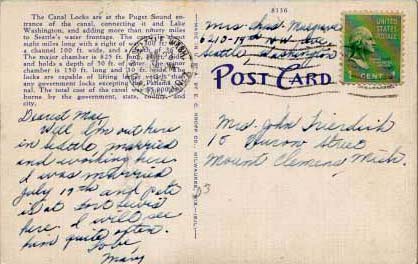 The Canal Locks are at the Puget Sound en-
trance of the canal, connecting it and Lake
Washington, and adding more than ninety miles
to Seattle's water frontage. The canal is about
eight miles long with a right of way 300 feet
a channel 100 feet wide, and a depth of
The major chamber is 825 feet long,
and holds a depth of 50 feet of water. The minor
chamber is 150 long and 30 feet wide.
locks are capable of lifting
any government locks excepting the Panama
The total cost of the canal was
borne by the government, state, county, and
city.
8136
Mrs. Chas. Musgrave
6210-19th N.W.
Seattle, Washington
UNITED STATES POSTAGE
1 CENT 1
POST CARD
Dearest May
Well I'm out here
in Seattle, married
and working here
I was married
July 19th and Pete
is at Fort Lewis
here. I will see
him quite often.
Love
Mary
E. C. KROPP CO., MILWAUKEE, WIS.
D3
Mrs. John Frierdich
15 Huron Street
Mount Clemens, Mich.